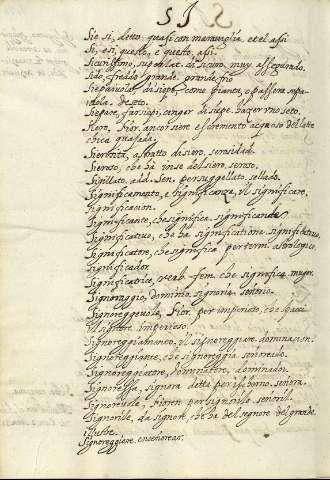 SI
Sie si, detto quasi con maraviglia, et el assi
Si, esi, questo, e questo, assi.
Sicurissimo, superlat. di sicuro, muy assegurado.
Sido, freddo grande. grande frio
Siepaiuola, di siepe, come pianta, o passera sepa
iuola. de seto.
Siepare, far siepi, cinger di siepe. hazer vno seto.
Siero, Fior. ancor siere escremento acquoso del latte
coica quasada.
Sierosità, astratto di siero, serosidad.
Sieroso, che ha in se del siero, seroso.
Sigillato, add. Sen. per suggellato, sellado.
Significamento, e significanza, il significare,
significacion.
Significante, che significa. significando
Significativo, che ha significatione. significativo,
Significatore, che significa, per term. astrologico,
significador
Significatrice, verb. fem. che significa. muger.
Signoraggio, dominio, signoria. señorio.
Signoreggevole, Fior. per imperioso, che
il signore. imperioso.
Signoreggiamento, il signoreggiare. dominacion.
Signoreggiante, che signoreggia. señoreado.
Signoreggiatore, dominatore, dominador.
Signorella, signora detta per ischerno. señora.
Signorevole, Fioren. per signorile. señoril.
Signorile, da signore, che ha del signore, del grande.
illustre.
Signoreggiare. enseñorear.